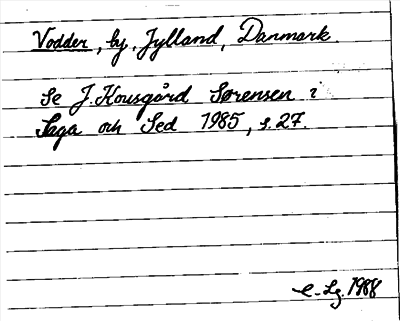 Vodder, by, Jylland, Danmark.
Se J. Kousgård Sørensen i
Saga och Sed 1985, s. 27.
e. Lg. 1988